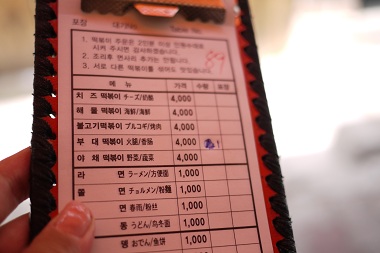 포장 대기No. Table No.
1. 떡볶이 주문은 2인분 이상 인원수대로
시켜 주시면 감사하겠습니다.
2. 조리후 면사리 추가는 안됩니다.
3. 서로 다른 떡볶이를 섞어도 맛있습니다.
89
메 뉴 가격 수량 포장
치 즈 떡볶이 チーズ/奶酪 4,000
해 물 떡볶이 海鮮/海鲜 4,000
불고기떡볶이 プルコギ/烤肉 4,000
부 대 떡볶이 火腿/香肠 4,000
야 채 떡볶이 野菜/蔬菜 4,000
라 면 ラーメン/方便面 1,000
쫄 면 チョルメン/粉麵 1,000
면 春雨/粉丝 1,000
동 うどん/乌冬面 1,000
뎅 おでん/鱼饼 1,000